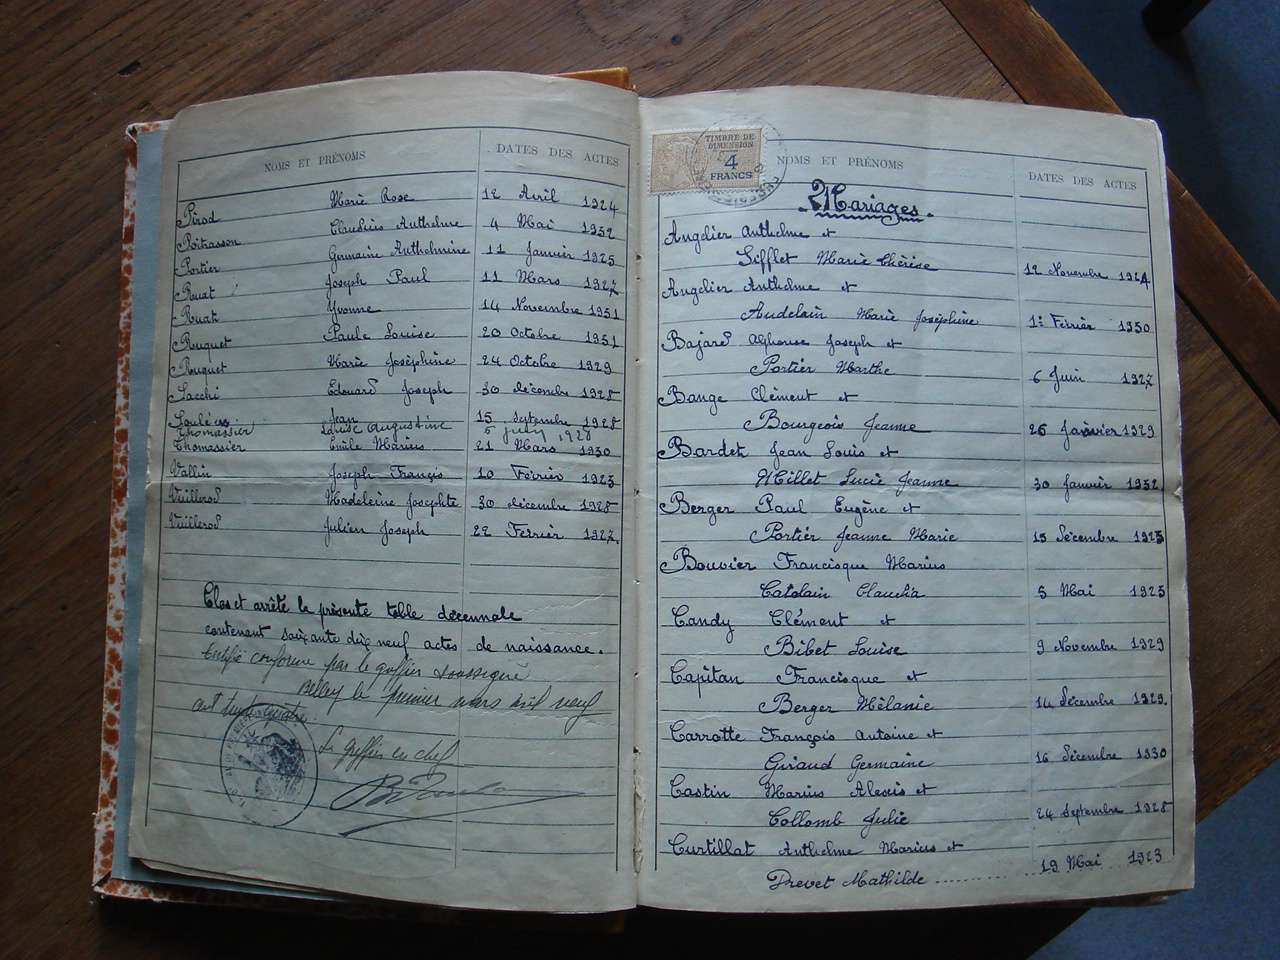 NOMS ET PRÉNOMS DATES DES ACTES
Pirod Marie Rose 12 Avril 1924
Poitrasson Claudius Anthelme 4 Mai 1932
Portier Germaine Anthelmine 11 Janvier 1925
Ruat Joseph Paul 11 Mars 1927
Ruat Yvonne 14 Novembre 1931
Ruquet Paule Louise 20 Octobre 1931
Ruquet Marie Joséphine 24 Octobre 1929
Sacchi Edouard Joseph 30 décembre 1928
Jean 15 septembre 1928
Thomassier Louise Augustine 5 juin 1928
Thomassier Emile Marius 21 Mars 1930
Vallin Joseph François 10 Février 1923
Vuillerod Madeleine Josephte 30 décembre 1928
Vuillerod Julien Joseph 22 Février 1927.
Clos et arrêté la présente table décennale
contenant soixante dix neuf actes de naissance.
Certifié conforme par le greffier soussigné
Belley le premier mars mil neuf
cent trente quatre.
Le greffier en chef
TIMBRE DE
DIMENSION
4
FRANCS
NOMS ET PRÉNOMS DATES DES ACTES
Mariages.
Angelier Anthelme et
Sifflet Marie Thérèse 12 Novembre 1924
Angelier Anthelme et
Audelain Marie Joséphine 1er Février 1930
Bajard Alphonse Joseph et
Portier Marthe 6 Juin 1927
Bange Clément et
Bourgeois Jeanne 26 Janvier 1929
Bardet Jean Louis et
Millet Lucie Jeanne 30 Janvier 1932
Berger Paul Eugène et
Portier Jeanne Marie 15 Décembre 1923
Bouvier Francisque Marius
Catelain Claudia 5 Mai 1923
Candy Clément et
Bibet Louise 9 Novembre 1929
Capitan Francisque et
Berger Mélanie 14 Décembre 1929.
Carrotte François Antoine et
Giraud Germaine 16 Décembre 1930
Castin Marius Alexis et
Collomb Julie 24 Septembre 1928
Curtillat Anthelme Marius et
Prevet Mathilde .......... 19 Mai 1923